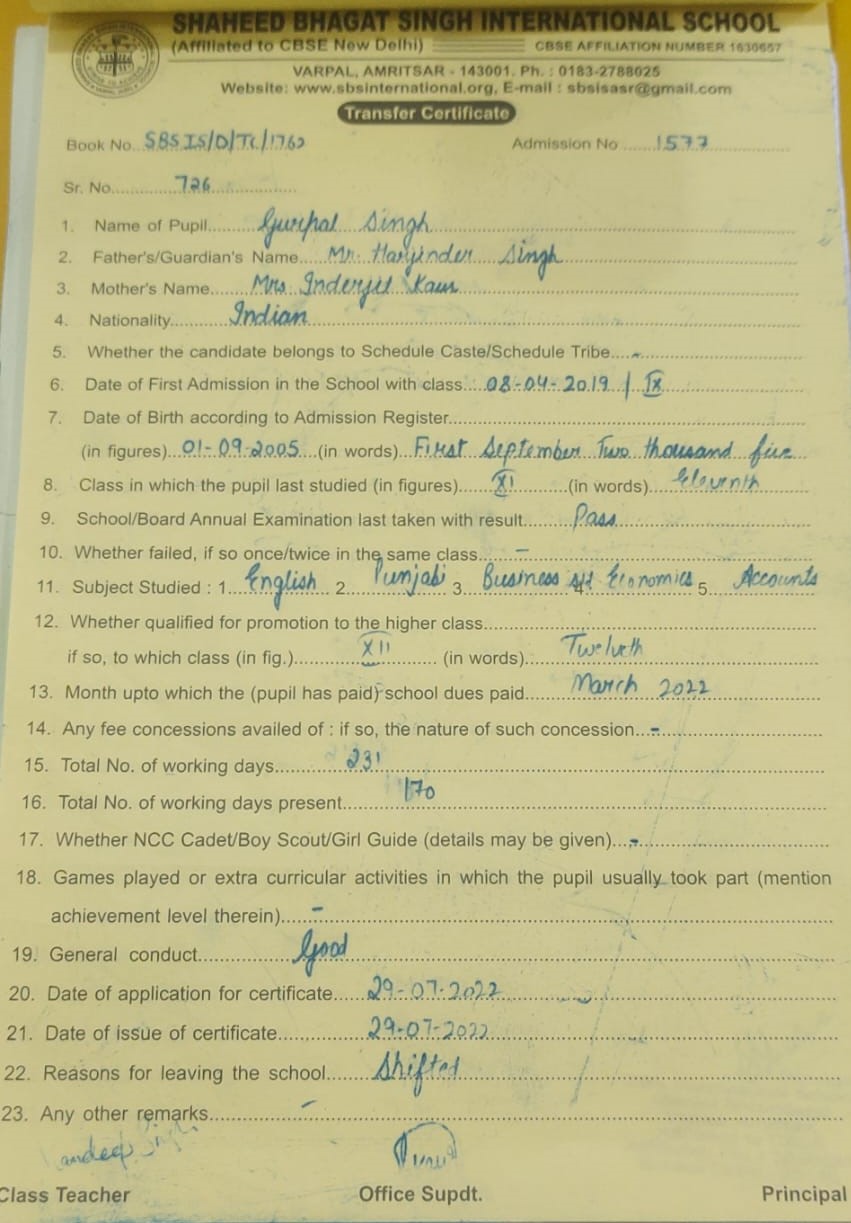 SHAHEED BHAGAT SINGH INTERNATIONAL SCHOOL
(Affiliated to CBSE New Delhi) CBSE AFFILIATION NUMBER 1630657
VARPAL, AMRITSAR - 143001. Ph. : 0183-2788025
Website: www.sbsinternational.org, E-mail : sbsisasr@gmail.com
Transfer Certificate
Book No. SBSIS/D/TC/1762 Admission No 1577
Sr. No. 726
1. Name of Pupil Gurpal Singh
2. Father's/Guardian's Name Mr. Harjinder Singh
3. Mother's Name Mrs Inderjit Kaur
4. Nationality Indian
5. Whether the candidate belongs to Schedule Caste/Schedule Tribe -
6. Date of First Admission in the School with class 08-04-2019 | IX
7. Date of Birth according to Admission Register
(in figures) 01-09-2005 (in words) First September Two thousand five
8. Class in which the pupil last studied (in figures) XI (in words) Eleventh
9. School/Board Annual Examination last taken with result Pass
10. Whether failed, if so once/twice in the same class -
11. Subject Studied : 1. English 2. Punjabi 3. Business St 4. Economics 5. Accounts
12. Whether qualified for promotion to the higher class
if so, to which class (in fig.) XII (in words) Twelveth
13. Month upto which the (pupil has paid) school dues paid March 2022
14. Any fee concessions availed of : if so, the nature of such concession -
15. Total No. of working days 231
16. Total No. of working days present 170
17. Whether NCC Cadet/Boy Scout/Girl Guide (details may be given) -
18. Games played or extra curricular activities in which the pupil usually took part (mention
achievement level therein) -
19. General conduct Good
20. Date of application for certificate 29-07-2022
21. Date of issue of certificate 29-07-2022
22. Reasons for leaving the school Shifted
23. Any other remarks -
Class Teacher Office Supdt. Principal